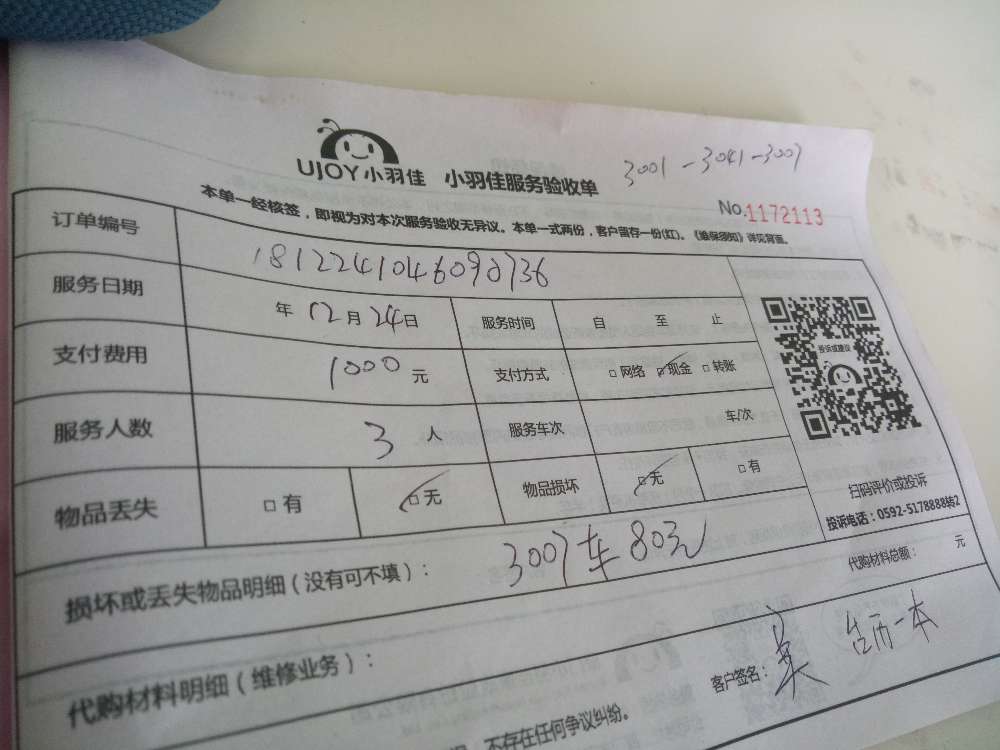 UJOY小羽佳 小羽佳服务验收单
3001-3041-3007
No.1172113
本单一经核签，即视为对本次服务验收无异议。本单一式两份，客户留存一份(红)。《维保须知》详见背面。
订单编号 1812241046090736
服务日期 年 12月 24日 服务时间 自 至 止
支付费用 1000 元 支付方式 □网络 ☑现金 □转账
服务人数 3 人 服务车次 车/次
物品丢失 □有 ☑无 物品损坏 ☑无 □有
投诉或建议
扫码评价或投诉
投诉电话：0592-5178888转2
损坏或丢失物品明细（没有可不填）： 3007车 80元
代购材料总额： 元
代购材料明细（维修业务）：
客户签名： 台历一本
不存在任何争议纠纷。